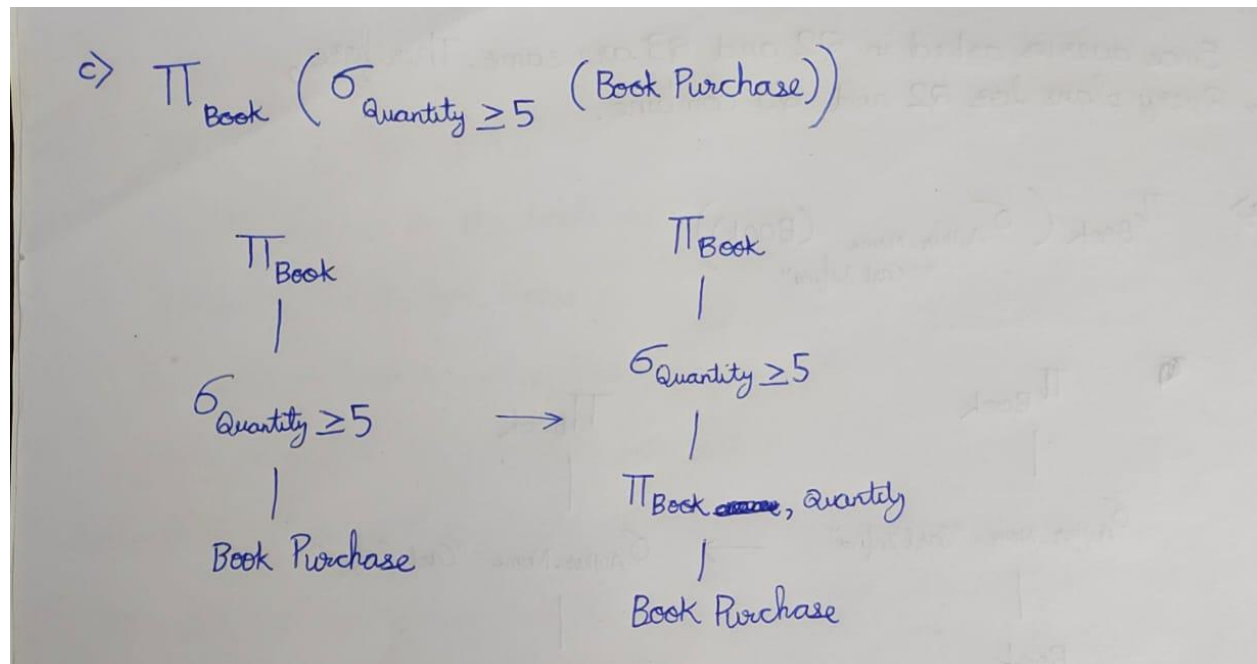 c) π Book (σ Quantity ≥ 5 (Book Purchase))
π Book
σ Quantity ≥ 5
Book Purchase
→
π Book
σ Quantity ≥ 5
π Book , Quantity
Book Purchase